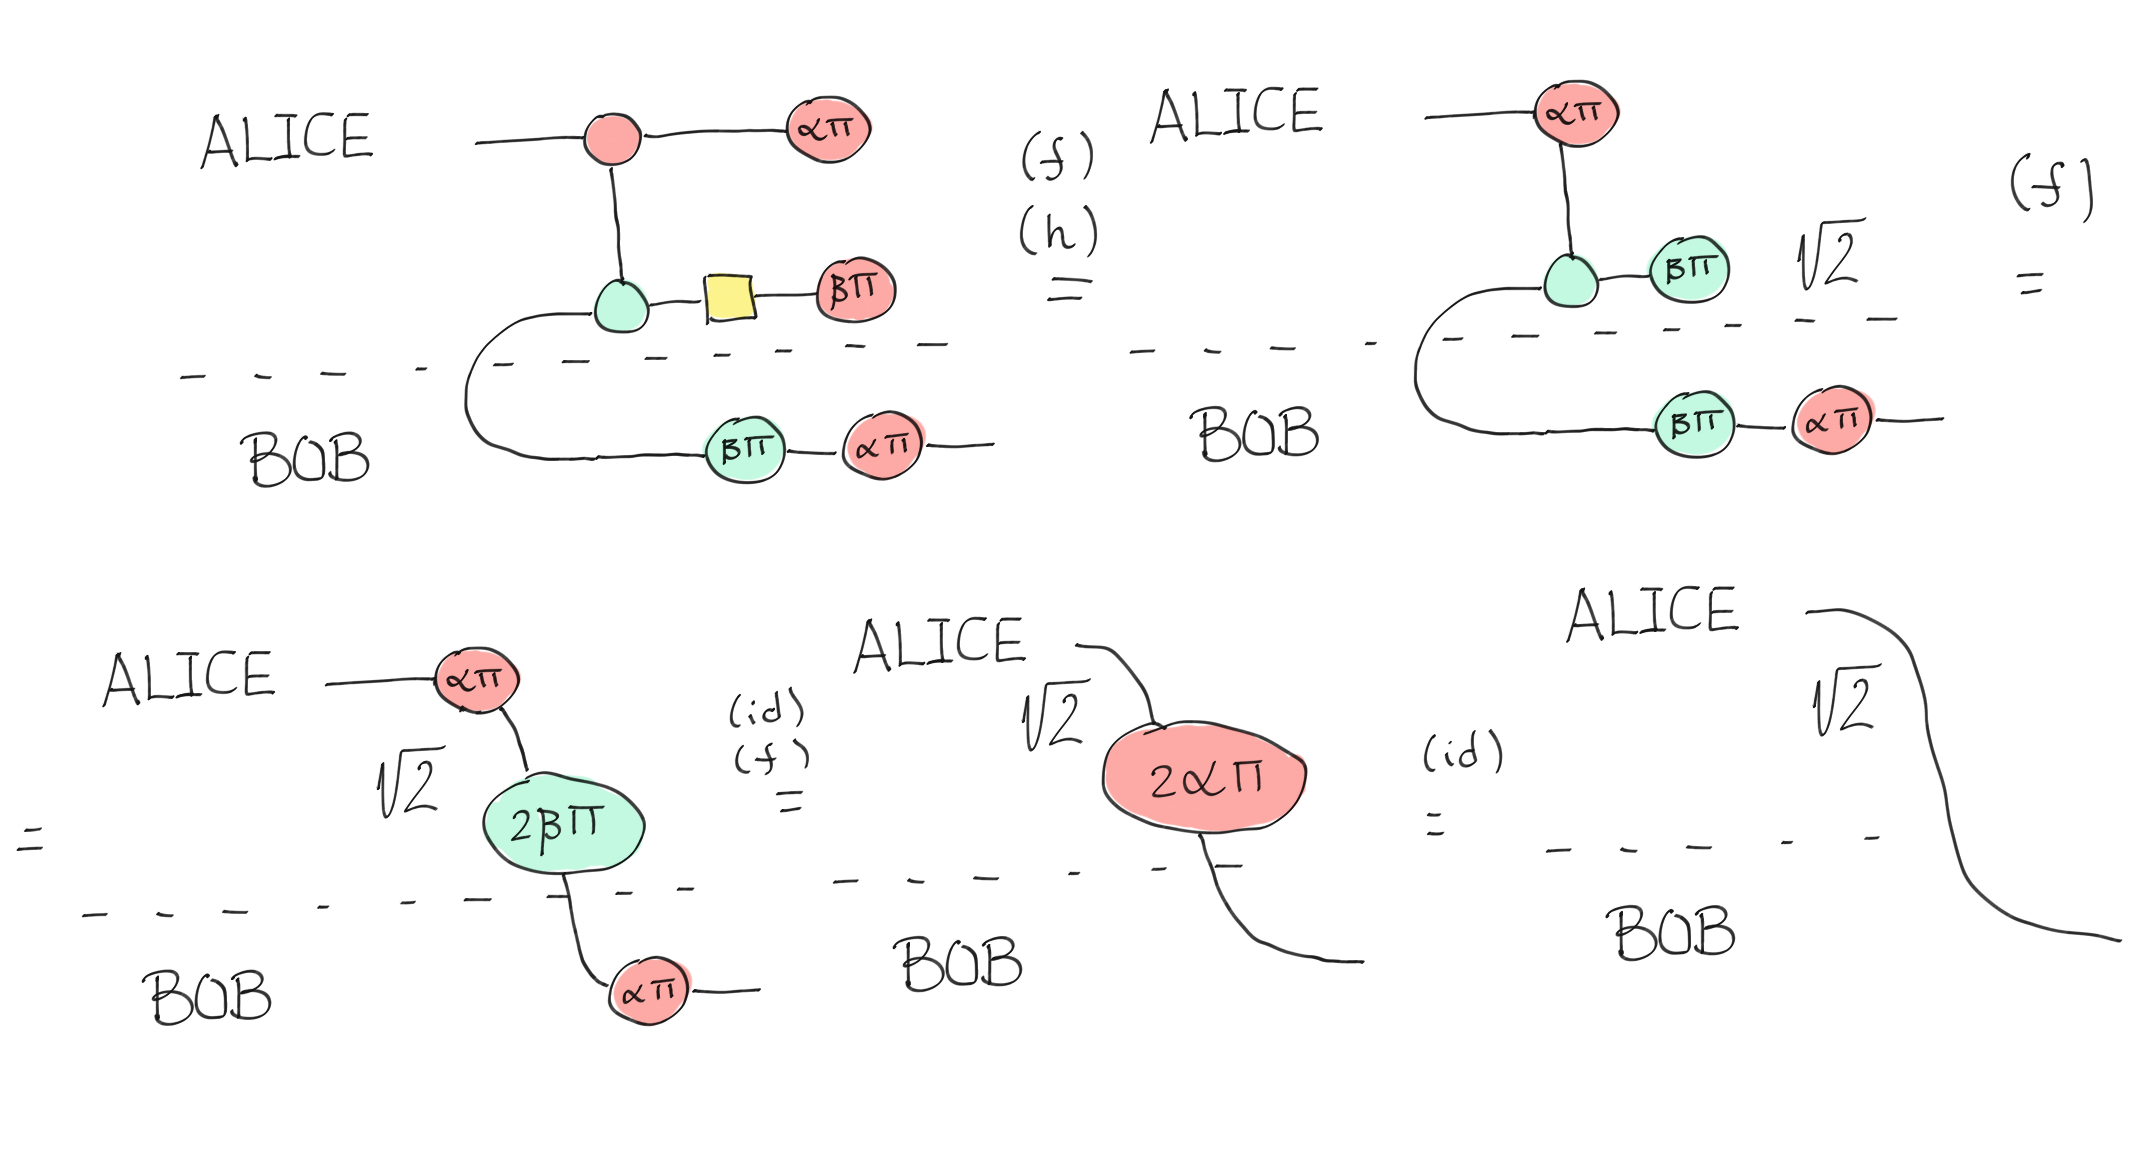 ALICE
απ
βπ
BOB
βπ απ
(f)
(h)
=
ALICE
απ
βπ √2
BOB
βπ απ
(f)
=
=
ALICE
απ
√2
2βπ
BOB
απ
(id)
(f)
=
ALICE
√2
2απ
BOB
(id)
=
ALICE
√2
BOB